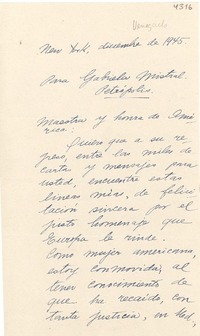 4316
Venezuela
New York, diciembre de 1945.
Para Gabriela Mistral.
Petrópolis.
Maestra y honra de Amé
rica:
Quiero que a su re
greso, entre las miles de
cartas y mensajes para
usted, encuentre estas
líneas mías, de felici
tación sincera por el
justo homenaje que
Europa le rinde.
Como mujer americana,
estoy conmovida, al
tener conocimiento de
que ha recaído, con
tanta justicia, en Ud,